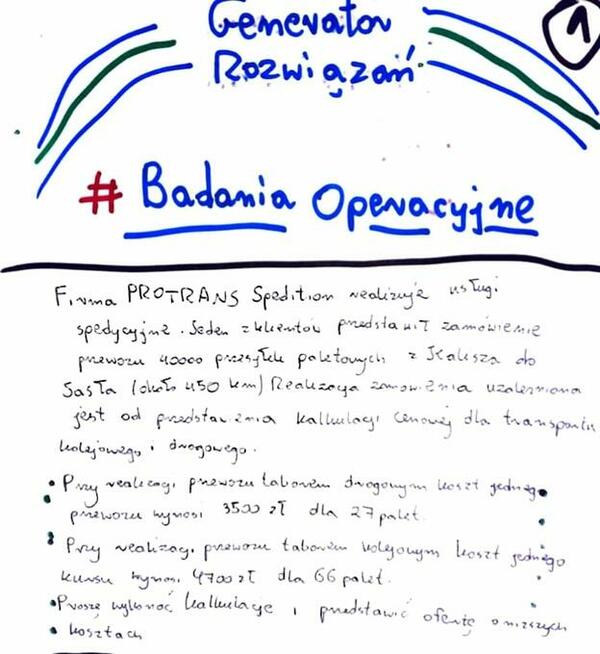 Generator
1
Rozwiązań
# Badania Operacyjne
Firma PROTRANS Spedition realizuje usługi
spedycyjne. Jeden z klientów przedstawił zamówienie
przewozu 40000 przesyłek paletowych z Kalisza do
Jasła (około 450 km) Realizacja zamówienia uzależniona
jest od przedstawienia kalkulacji cenowej dla transportu
kolejowego i drogowego.
• Przy realizacji przewozu taborem drogowym koszt jednego
przewozu wynosi 3500 zł dla 27 palet.
• Przy realizacji przewozu taborem kolejowym koszt jednego
kursu wynosi 4700 zł dla 66 palet.
• Proszę wykonać kalkulację i przedstawić ofertę o niższych
• kosztach